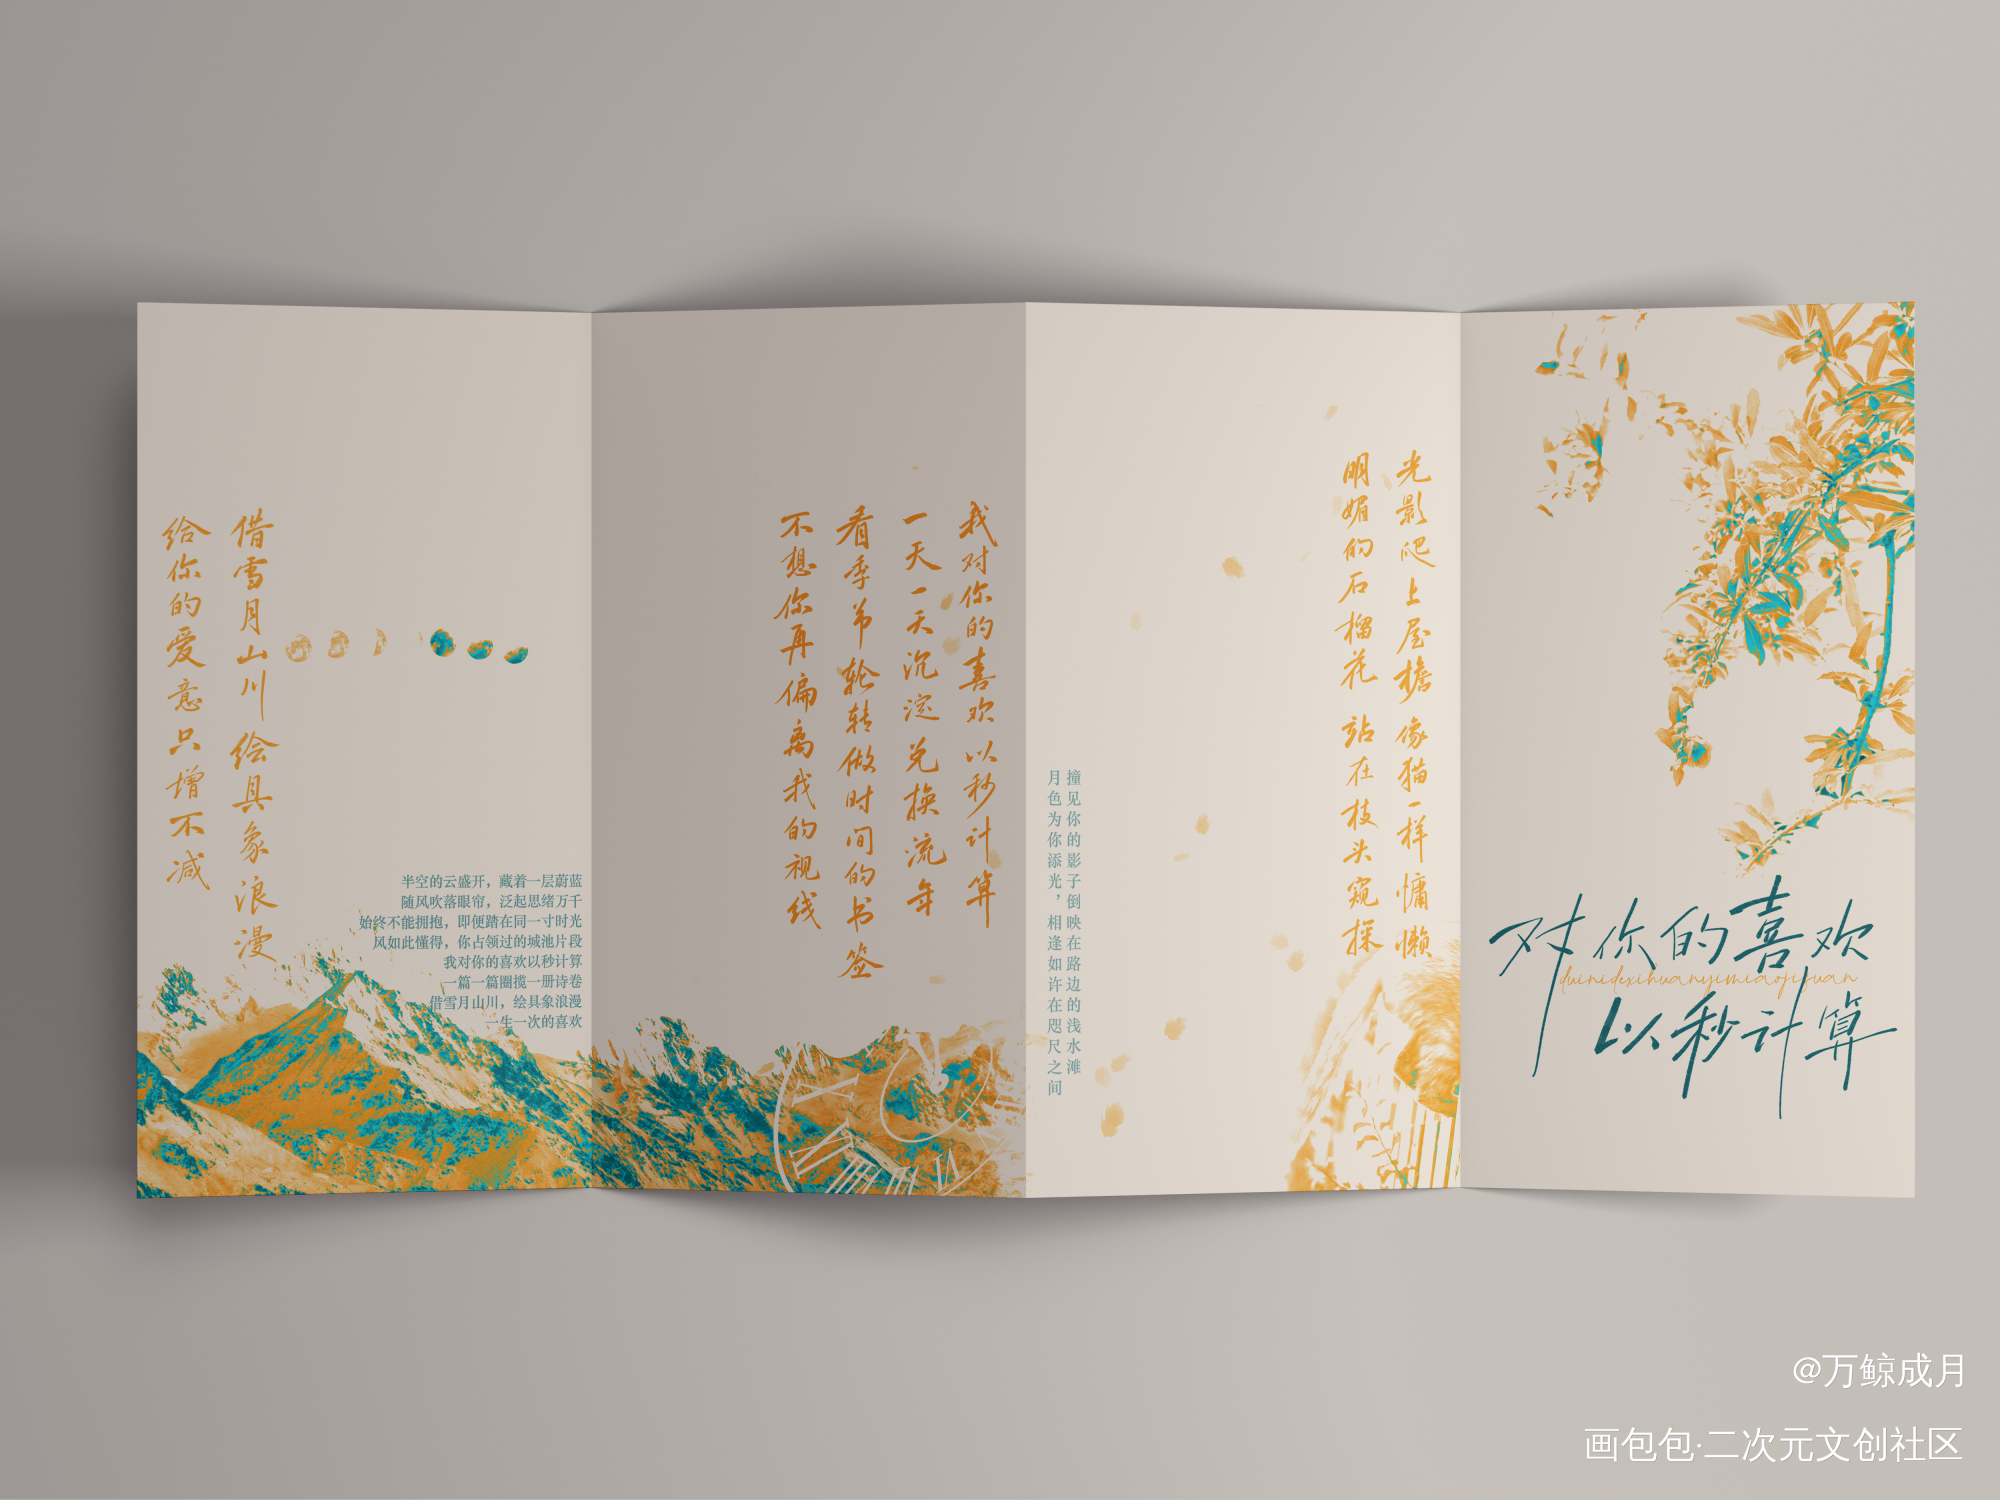 对你的喜欢
duinidexihuanyimiaojisuan
以秒计算
光影爬上屋檐 像猫一样慵懒
明媚的石榴花 站在枝头窥探
撞见你的影子倒映在路边的浅水滩
月色为你添光，相逢如许在咫尺之间
我对你的喜欢 以秒计算
一天一天沉淀 兑换流年
看季节轮转做时间的书签
不想你再偏离我的视线
借雪月山川 绘具象浪漫
给你的爱意只增不减
半空的云盛开，藏着一层蔚蓝
随风吹落眼帘，泛起思绪万千
始终不能拥抱，即便踏在同一寸时光
风如此懂得，你占领过的城池片段
我对你的喜欢以秒计算
一篇一篇圈揽一册诗卷
借雪月山川，绘具象浪漫
一生一次的喜欢
@万鲸成月
画包包·二次元文创社区